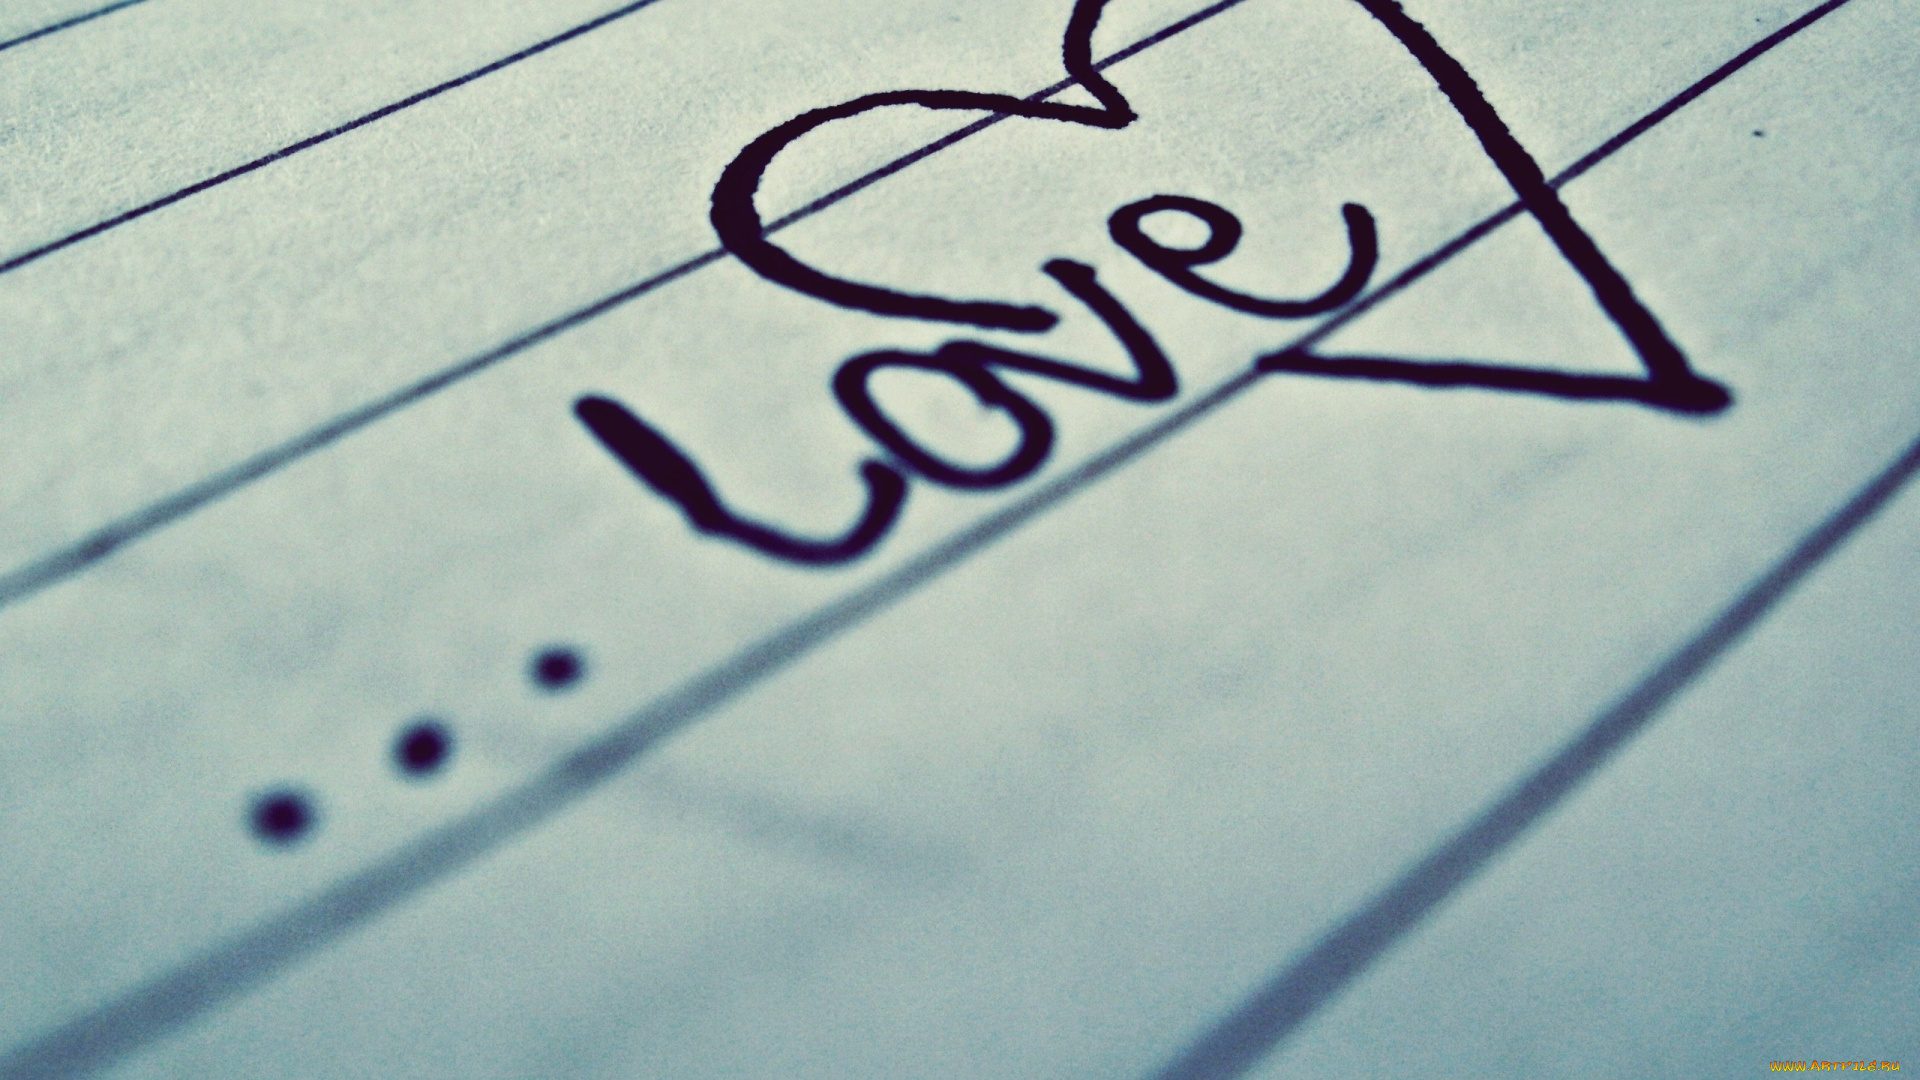 ... Love
www.ARTFILE.RU